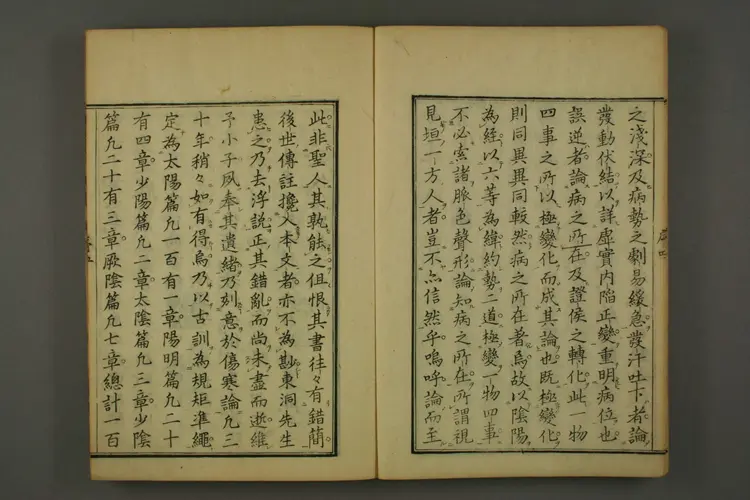 之淺深及病勢之劇易緩急發汗吐下者論
發動伏結以詳虛實内陷正變重明病位也
誤逆者論病之所在及證候之轉化此一物
四事之所以極變化而成其論也既極變化
則同異異同較然病之所在著焉故以陰陽
為經以六等為緯約勢二道極變一物四事
不必索諸脈色聲形論知病之所在所謂視
見垣一方人者豈不尒信然乎嗚呼論而至
此非聖人其孰能之但恨其書徃々有錯蕳
後世傳註攙入本文者亦不為尠東洞先生
患之乃去浮説正其錯亂而尚未盡而逝維
予小子夙奉其遺緒乃刻意於傷寒論九三
十年稍々如有得焉乃以古訓為規矩準繩
定為太陽篇凢一百有一章陽明篇凢二十
有四章少陽篇凢二章太陰篇凢三章少陰
篇凢二十有三章厥陰篇凢七章總計一百